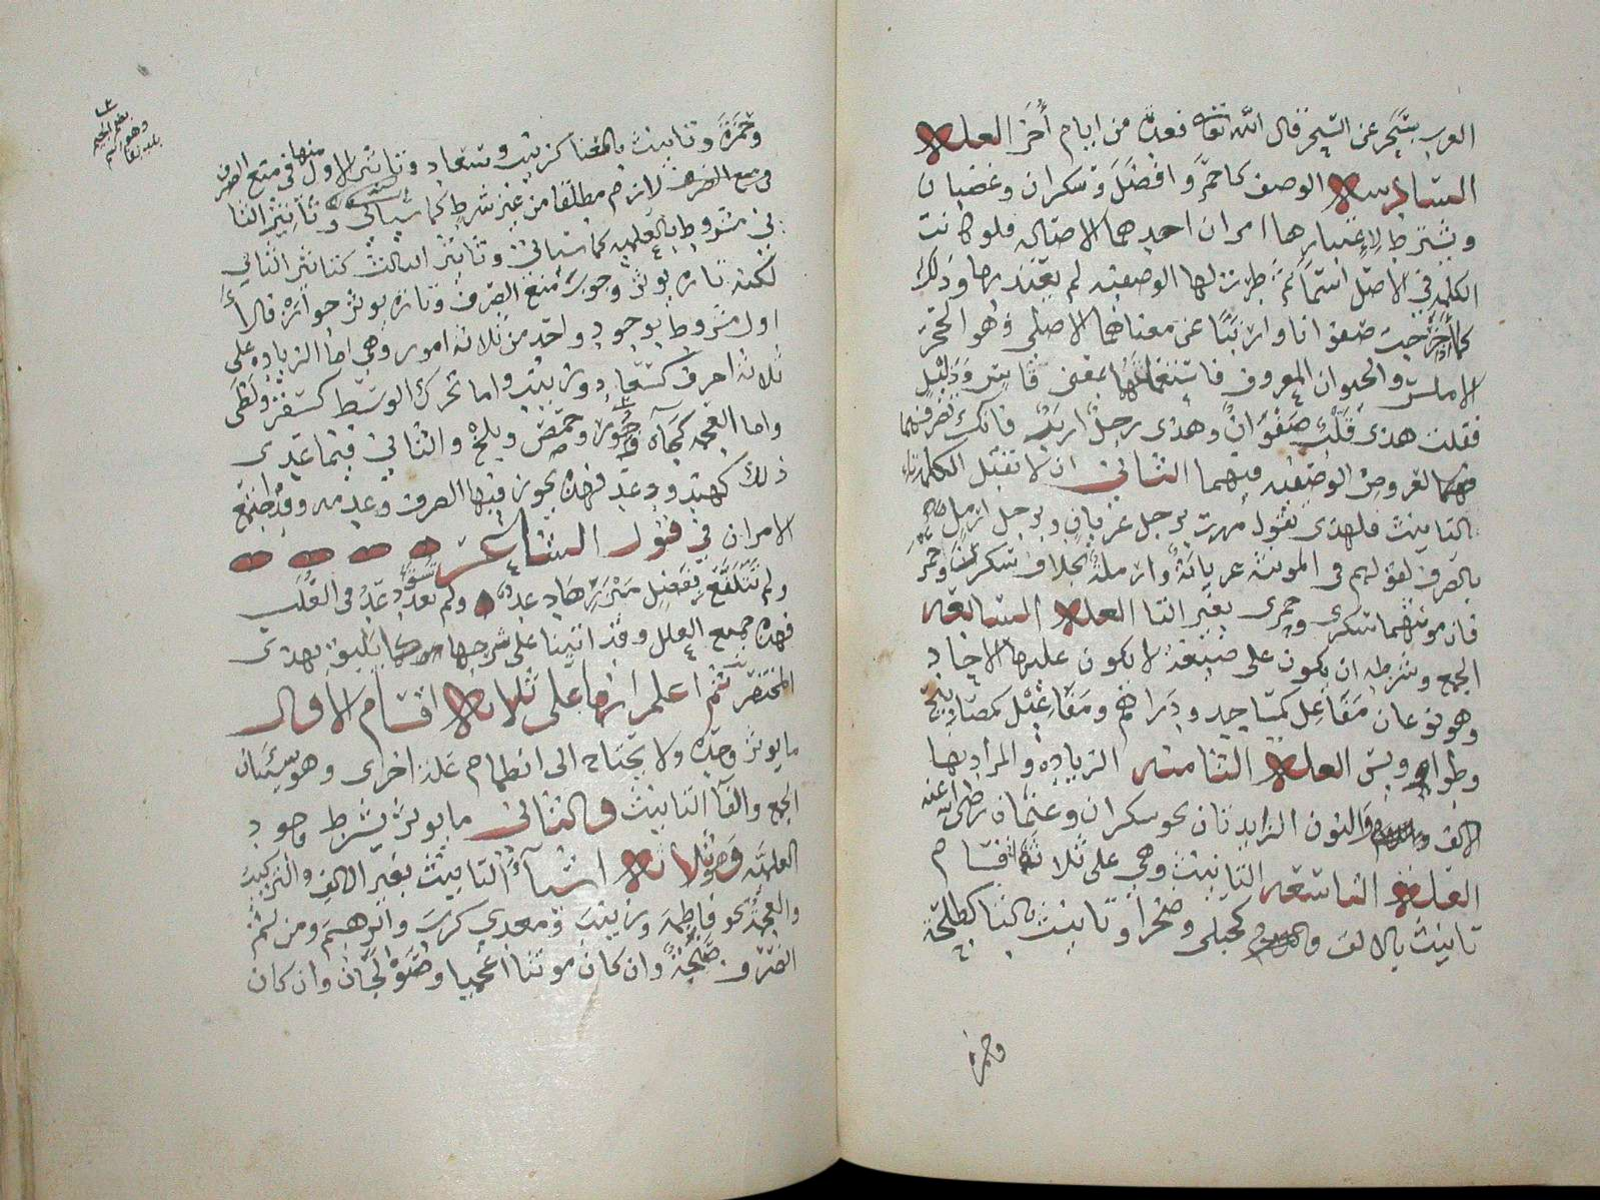 العرب بسَحَر عن السحر قال الله تعالى فعدة من ايام أُخَر العلة
السادسة الوصف كاحمر وافضل وسكران وغضبان
ويشترط لاعتبارها امران احدهما الاصالة فلو كانت
الكلمة في الاصل اسما ثم طرت لها الوصفية لم يعتد بها وذلك
كما اذا اخرجت صفوانا وارنبا عن معناهما الاصلي وهو الحجر
الاملس والحيوان المعروف فاستعملتهما بمعنى قاس وذليل
فقلت هذى قلب صفوان وهذى رجل ارنب فانك تصرفهما
لعروض الوصفية فيهما الثاني ان لا تقبل الكلمة تاء
التانيث فلهذى تقول مررت برجل عريان وبرجل ارمل
بالصرف لقولهم في المونثة عريانة وارملة بخلاف سكران واحمر
فان مونثهما سكرى وحمرى بغير التا العلة السابعة
الجمع وشرطه ان يكون على صيغة لا يكون عليها الاحاد
وهو نوعان مفاعل كمساجد ودراهم ومفاعيل كمصابيح
وطواويس العلة الثامنة الزيادة والمراد بها
الالف والنون الزايدتان نحو سكران وعثمان
العلة التاسعة التانيث وهي على ثلاثة اقسام
تانيث بالالف كحبلى وصحرا وتانيث بالتا كطلحة
وحمزة
وحمزة وتانيث بالمعنا كزينب وسعاد وتاثير الاول منها في منع الصرف
لازم مطلقا من غير شرط كما سياتي وتاثير الثا
ني مشروط بالعلمية كما سياتي وتاثير الثالث كتاثير الثاني
لكنه تارة يوثر وجوب منع الصرف وتارة يوثر جوازه فالأ
اول مشروط بوجود واحد من ثلاثة امور وهي اما الزيادة على
ثلاثة احرف كسعاد وزينب واما تحرك الوسط كسقر ولظى
واما العجمة كماه وجور وحمص وبلخ والثاني فيما عدى
ذلك كهند ودعد فهذه يجوز فيها الصرف وعدمه وقد اجتمع
الامران في قول الشاعر
ولم تتلفع بفضل ميزرها دعد ولم تسق دعد في العلب
فهذه جميع العلل وقد اتينا على شرحها بما يليق بهذى
المختصر ثم اعلم انها على ثلاثة اقسام الاول
ما يوثر وحده ولا يحتاج الى انضمام علة اخرى وهو شيئان
الجمع والفا التانيث والثاني ما يوثر بشرط وجود
العلمية وهو ثلاثة اشيآء التانيث بغير الالف والتركيب
والعجمة نحو فاطمة وزينب ومعدي كرب وابرهيم ومن ثم
انصرف صنجة وان كان مونثا اعجميا وصولجان وان كان